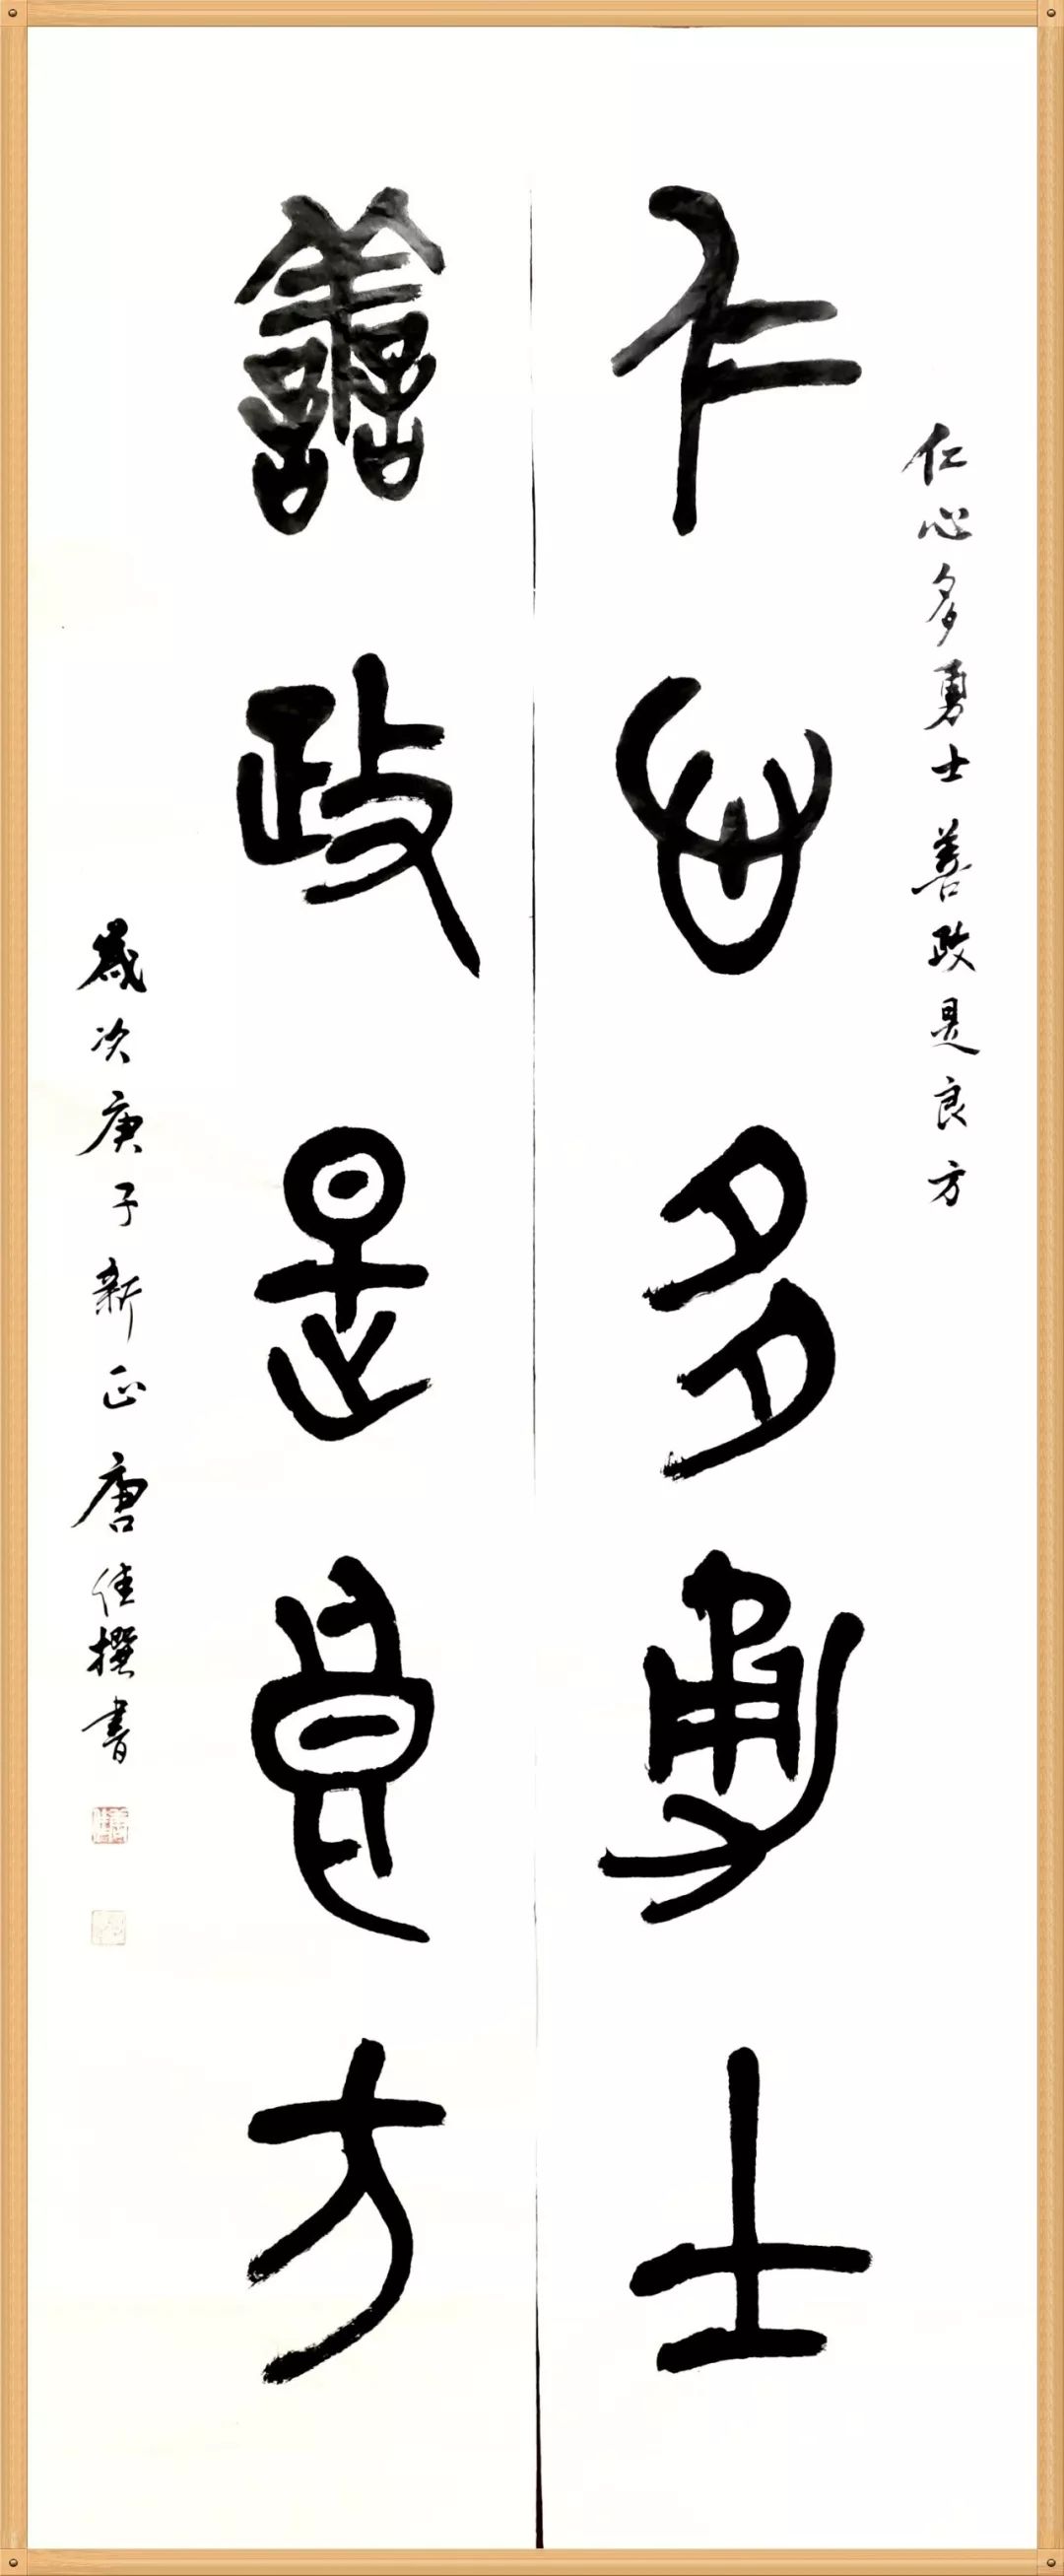 仁心多勇士善政是良方
仁心多勇士
善政是良方
歲次庚子新正唐佳撰書